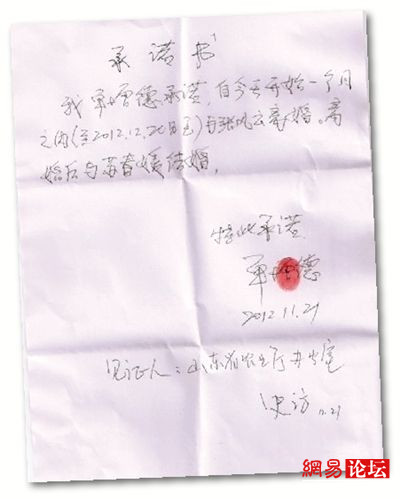 承诺书
我单增德承诺,自今天开始一个月
之内(至2012.12.20日止)与张凤云离婚。离
婚后与苏春媛结婚。
特此承诺
单增德
2012.11.21
见证人:山东省农业厅办公室
11.21
網易论坛